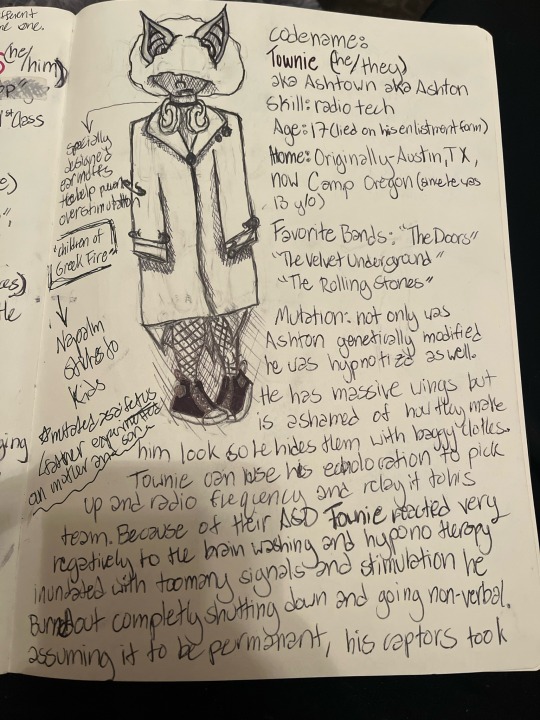 fferent
me one.
(he/
him)
1st Class
codename:
Townie (he/they)
aka Ashtown aka Ashton
skill: radio tech
Age: 17 (lied on his enlistment form)
Home: Originally-Austin, TX,
now Camp Oregon (since he was
13 y/o)
Favorite Bands: "The Doors"
"The Velvet Underground"
"The Rolling Stones"
Mutation: not only was
Ashton genetically modified
he was hypnotized as well.
He has massive wings but
is ashamed of how they make
him look so he hides them with baggy clothes.
Townie can use his echolocation to pick
up and radio frequency and relay it to his
team. Because of their ASD Townie reacted very
negatively to the brain washing and hypno therapy
inundated with too many signals and stimulation he
Burned out completly shutting down and going non-verbal.
assuming it to be permanant, his captors took
specially
designed
earmuffs
to help
overstimulation
"children of
Greek Fire"
Napalm
Kids
*mutated as a fetus
father experimented
on mother and son